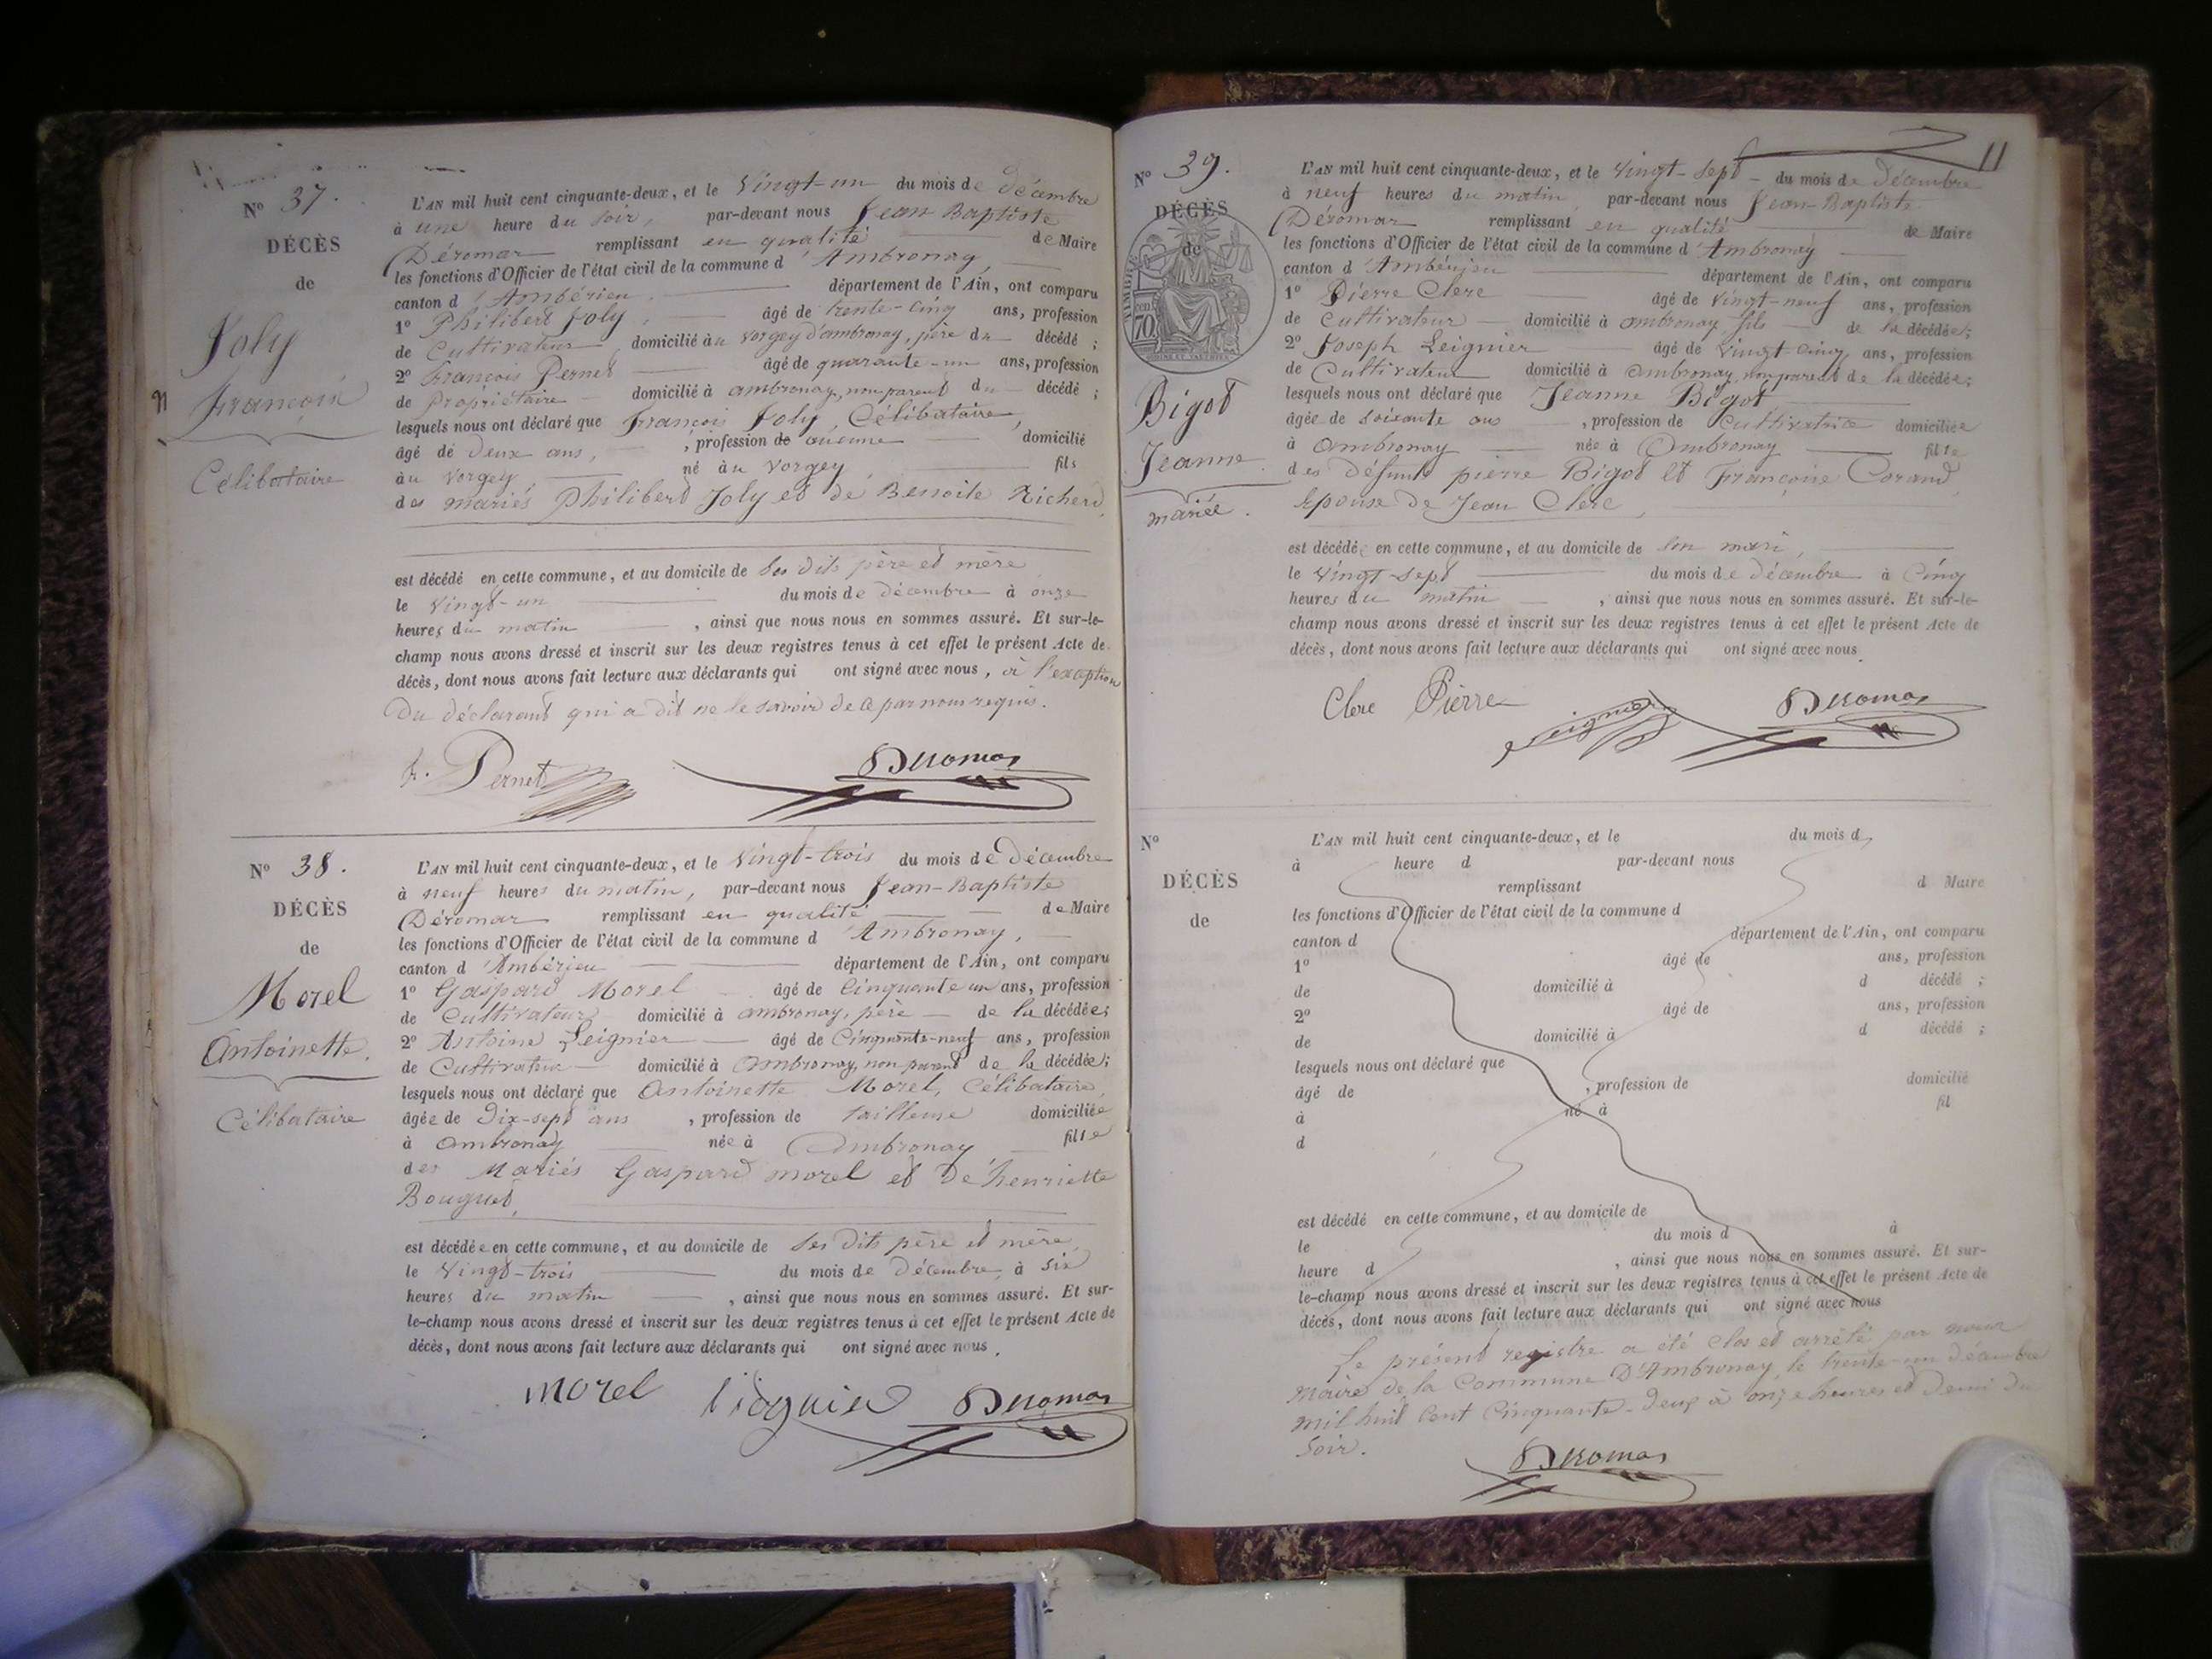 N° 37.
DÉCÈS
de
Joly
François
Célibataire
L'AN mil huit cent cinquante-deux, et le Vingt-un du mois de Décembre
à une heure du soir, par-devant nous Jean-Baptiste
Déromas remplissant en qualité de Maire
les fonctions d'Officier de l'état civil de la commune d'Ambronay,
canton d'Ambérieu département de l'Ain, ont comparu
1° Philibert Joly, âgé de trente-cinq ans, profession
de Cultivateur domicilié au Vorgey d'ambronay, père du décédé ;
2° François Pernet âgé de quarante-un ans, profession
de Propriétaire domicilié à ambronay, non parent du décédé ;
lesquels nous ont déclaré que François Joly, Célibataire,
âgé de Deux ans, , profession de aucune domicilié
au Vorgey, né au Vorgey, fils
des mariés Philibert Joly et de Benoite Richerd,
est décédé en cette commune, et au domicile de ses dits père et mère
le Vingt-un du mois de Décembre à onze
heures du matin , ainsi que nous nous en sommes assuré. Et sur-le-
champ nous avons dressé et inscrit sur les deux registres tenus à cet effet le présent Acte de
décès, dont nous avons fait lecture aux déclarants qui ont signé avec nous, à l'exception
Du déclarant qui a dit ne le savoir de ce par nous requis.
fr. Pernet Deromas
N° 38.
DÉCÈS
de
Morel
Antoinette.
Célibataire
L'AN mil huit cent cinquante-deux, et le Vingt-trois du mois de Décembre
à neuf heures du matin, par-devant nous Jean-Baptiste
Déromas remplissant en qualité de Maire
les fonctions d'Officier de l'état civil de la commune d'Ambronay,
canton d'Ambérieu département de l'Ain, ont comparu
1° Gaspard Morel âgé de Cinquante un ans, profession
de Cultivateur domicilié à ambronay, père de la décédée;
2° Antoine Leignier âgé de Cinquante-neuf ans, profession
de Cultivateur domicilié à Ambronay, non parent de la décédée;
lesquels nous ont déclaré que Antoinette Morel, Célibataire,
âgée de Dix-sept ans , profession de tailleuse domiciliée
à Ambronay née à Ambronay fille
des Mariés Gaspard morel et De henriette
Bouguet,
est décédée en cette commune, et au domicile de ses Dits père et mère,
le Vingt-trois du mois de Décembre, à six
heures du matin , ainsi que nous nous en sommes assuré. Et sur-
le-champ nous avons dressé et inscrit sur les deux registres tenus à cet effet le présent Acte de
décès, dont nous avons fait lecture aux déclarants qui ont signé avec nous.
morel liégnier Deromas
11
N° 39.
DÉCÈS
de
Bigot
Jeanne.
mariée.
L'AN mil huit cent cinquante-deux, et le Vingt-sept du mois de Décembre
à neuf heures du matin, par-devant nous Jean-Baptiste
Déromas remplissant en qualité de Maire
les fonctions d'Officier de l'état civil de la commune d'Ambronay
canton d'Ambérieu département de l'Ain, ont comparu
1° Pierre Clerc âgé de Vingt-neuf ans, profession
de Cultivateur domicilié à ambronay fils de la décédée;
2° Joseph Leignier âgé de Vingt cinq ans, profession
de Cultivateur domicilié à ambronay, non parent de la décédée;
lesquels nous ont déclaré que Jeanne Bigot
âgée de soixante ans , profession de Cultivatrice domiciliée
à Ambronay née à Ambronay fille
des Défunts pierre Bigot et Françoise Corand,
Epouse De Jean Clerc,
est décédée en cette commune, et au domicile de son mari,
le Vingt-sept du mois de Décembre à Cinq
heures du matin , ainsi que nous nous en sommes assuré. Et sur-le-
champ nous avons dressé et inscrit sur les deux registres tenus à cet effet le présent Acte de
décès, dont nous avons fait lecture aux déclarants qui ont signé avec nous.
Clerc Pierre Leignier Deromas
N°
DÉCÈS
de
L'AN mil huit cent cinquante-deux, et le du mois d
à heure d par-devant nous
remplissant d Maire
les fonctions d'Officier de l'état civil de la commune d
canton d département de l'Ain, ont comparu
1° âgé de ans, profession
de domicilié à d décédé ;
2° âgé de ans, profession
de domicilié à d décédé ;
lesquels nous ont déclaré que
âgé de , profession de domicilié
à né à fil
d
est décédé en cette commune, et au domicile de
le du mois d à
heure d , ainsi que nous nous en sommes assuré. Et sur-
le-champ nous avons dressé et inscrit sur les deux registres tenus à cet effet le présent Acte de
décès, dont nous avons fait lecture aux déclarants qui ont signé avec nous
Le présent registre a été clos et arrêté par nous
Maire de la Commune D'Ambronay, le trente-un Décembre
mil huit Cent Cinquante-Deux à onze heures et Demi du
soir.
Deromas